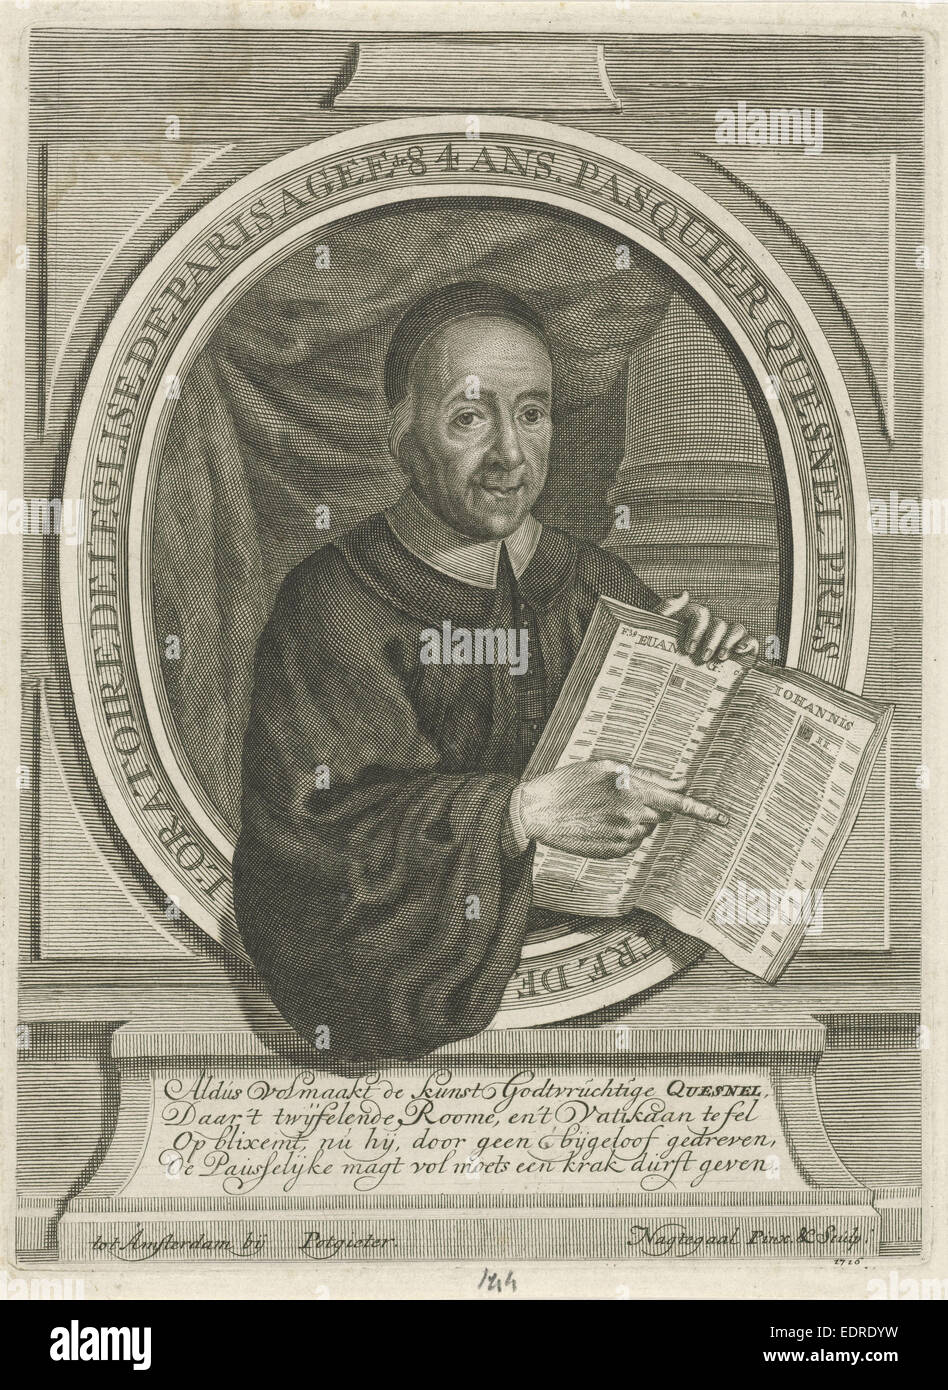 PASQUIER QUESNEL PRES
TRE. DE
L'ORATOIRE DE L'EGLISE DE PARIS AGEE de 84 ANS.
EUANG.
IOHANNIS
Aldús volmaakt de kunst Godtvrúchtige QUESNEL,
Daar't twÿfelende Roome, en't Vatikaan te fel
Op blixemt, nú hij, door geen bijgeloof gedreven,
De Paússelijke magt vol moets een krak dúrft geven.
tot Amsterdam bij Potgieter.
Nagtegaal Pinx. & Sculp.
1716
alamy
Image ID: EDRDYW
www.alamy.com